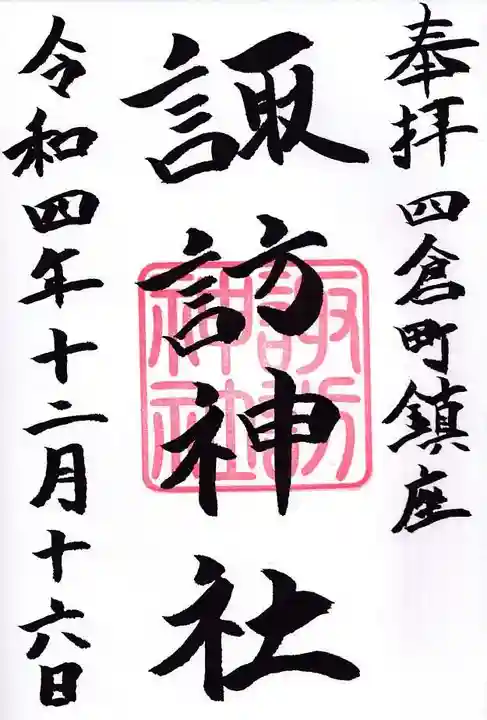 奉拝 四倉町鎮座
諏訪神社
諏訪
神社
令和四年十二月十六日